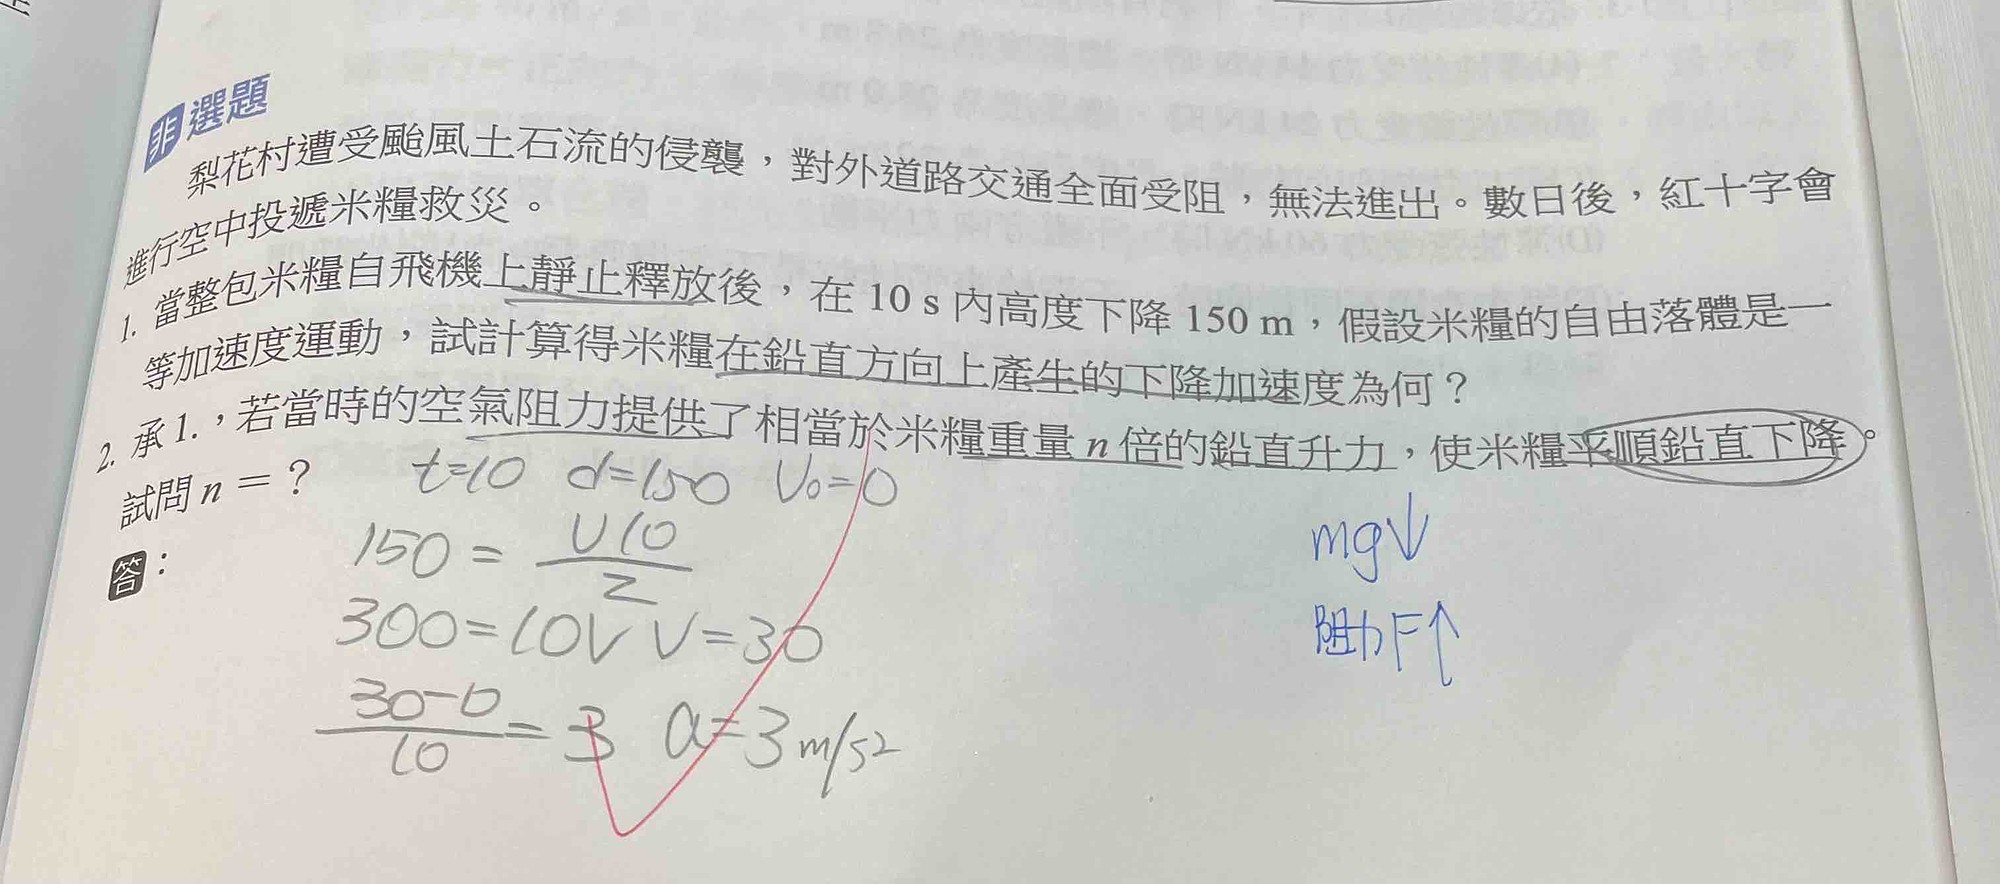 非選題
梨花村遭受颱風土石流的侵襲,對外道路交通全面受阻,無法進出。數日後,紅十字會
進行空中投遞米糧救災。
1. 當整包米糧自飛機上靜止釋放後,在 10 s 內高度下降 150 m,假設米糧的自由落體是一
等加速度運動,試計算得米糧在鉛直方向上產生的下降加速度為何?
2. 承 1.,若當時的空氣阻力提供了相當於米糧重量 n 倍的鉛直升力,使米糧平順鉛直下降。
試問 n = ?
答:
t=10 d=150 V₀=0
150 = V10/2
300=10V V=30
(30-0)/10 = 3 a=3 m/s²
mg↓
阻力F↑